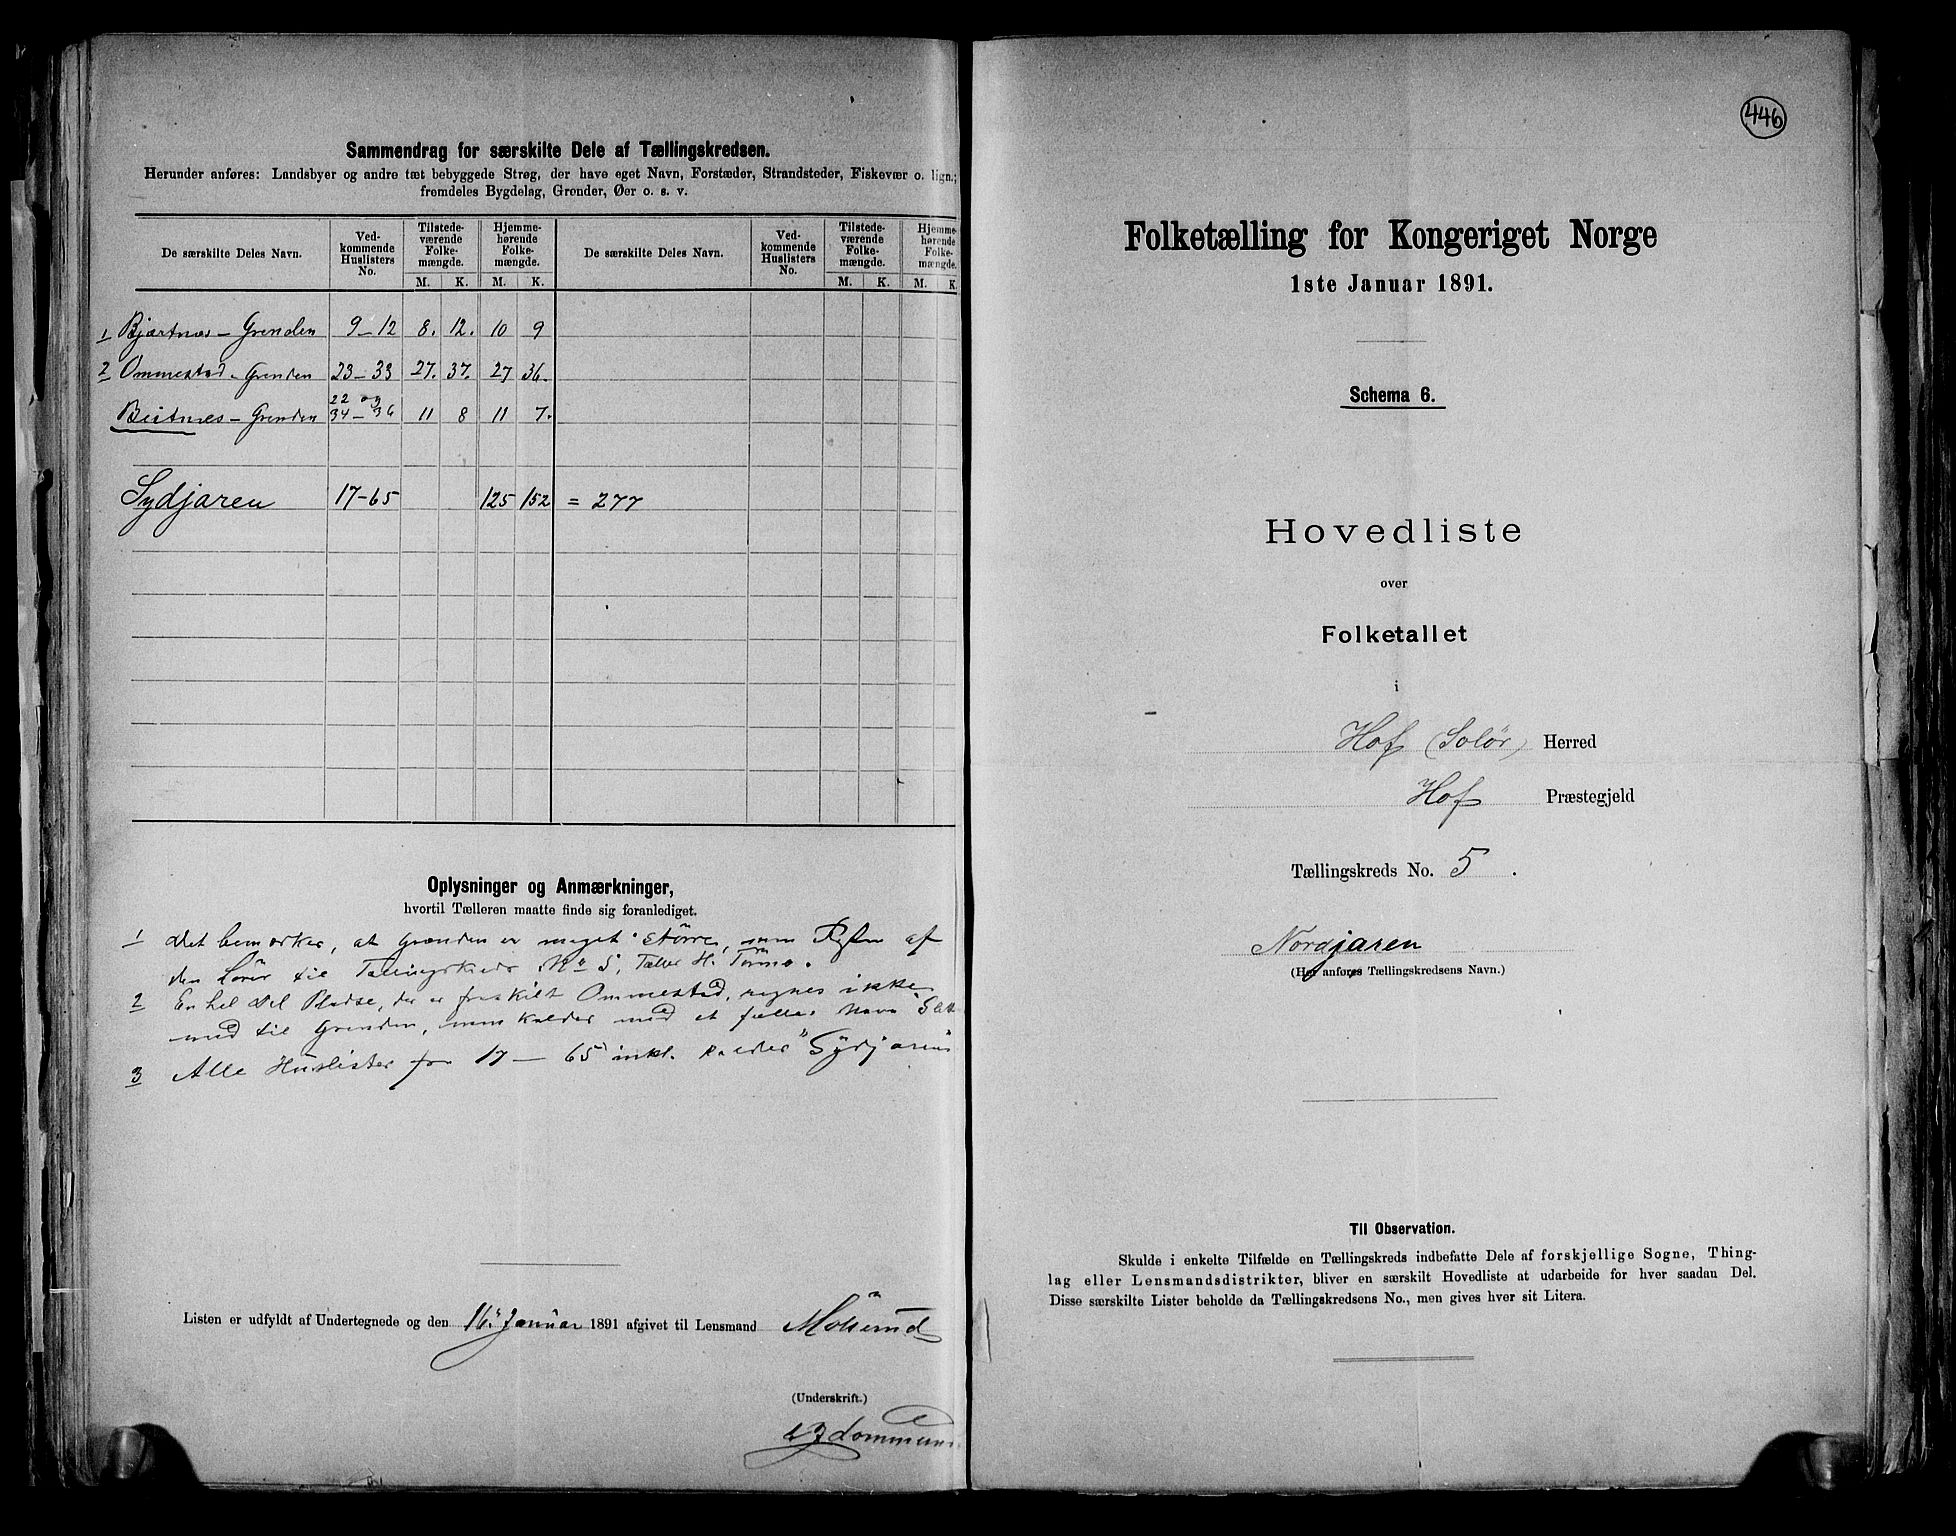 Sammendrag for særskilte Dele af Tællingskredsen.
Herunder anføres: Landsbyer og andre tæt bebyggede Strøg, der have eget Navn, Forstæder, Strandsteder, Fiskevær o. lign.;
fremdeles Bygdelag, Grender, Øer o. s. v.
De særskilte Deles Navn. Ved-kommende Huslisters No. Tilstede-værende Folke-mængde. Hjemme-hørende Folke-mængde. De særskilte Deles Navn. Ved-kommende Huslisters No. Tilstede-værende Folke-mængde. Hjemme-hørende Folke-mængde.
M. K. M. K. M. K. M. K.
1 Bjærtnæs-Grenden 9-12 8. 12. 10 9
2 Ommestad-Grenden 23-33 27. 37. 27 36.
22 og
Beitnæs-Grenden 34-36 11 8 11 7.
Sydjaren 17-65 125 152 = 277
Oplysninger og Anmærkninger,
hvortil Tælleren maatte finde sig foranlediget.
1 det bemærkes, at Grænden er meget større, af
den til No 5, H.
2 En hel del Pladse, der er fraskilt Ommestad, regnes ikke
med til Grenden, men kaldes med et fælles Navn
3 Alle Huslister fra 17-65 inkl. kaldes "Sydjaren"
Listen er udfyldt af Undertegnede og den 16. Januar 1891 afgivet til Lensmand
(Underskrift.)
446
Folketælling for Kongeriget Norge
1ste Januar 1891.
Schema 6.
Hovedliste
over
Folketallet
i
Hof (Solør) Herred
Hof Præstegjeld
Tællingskreds No. 5.
Nordjaren
(Her anføres Tællingskredsens Navn.)
Til Observation.
Skulde i enkelte Tilfælde en Tællingskreds indbefatte Dele af forskjellige Sogne, Thing-
lag eller Lensmandsdistrikter, bliver en særskilt Hovedliste at udarbeide for hver saadan Del.
Disse særskilte Lister beholde da Tællingskredsens No., men gives hver sit Litera.